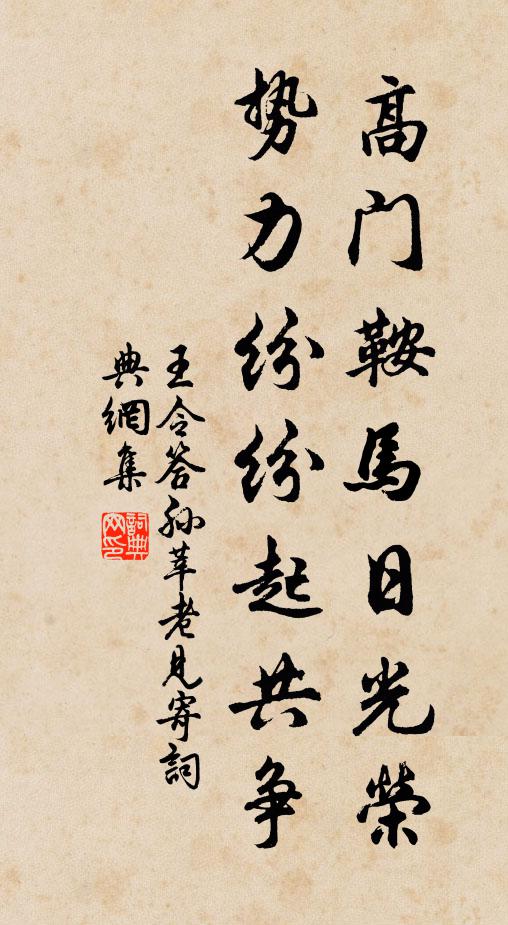 高门鞍馬日光榮
势力纷纷起共争
王令答孙莘老见寄詞
典網集
詞典
网印